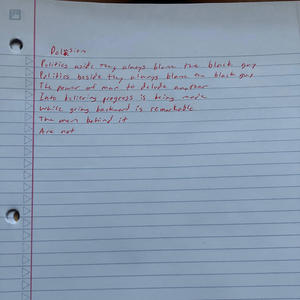 Delusion
Politics aside they always blame the black guy
Politics beside they always blame the black guy
The power of man to delude another
Into believing progress is being made
while going backward is remarkable
The men behind it
Are not